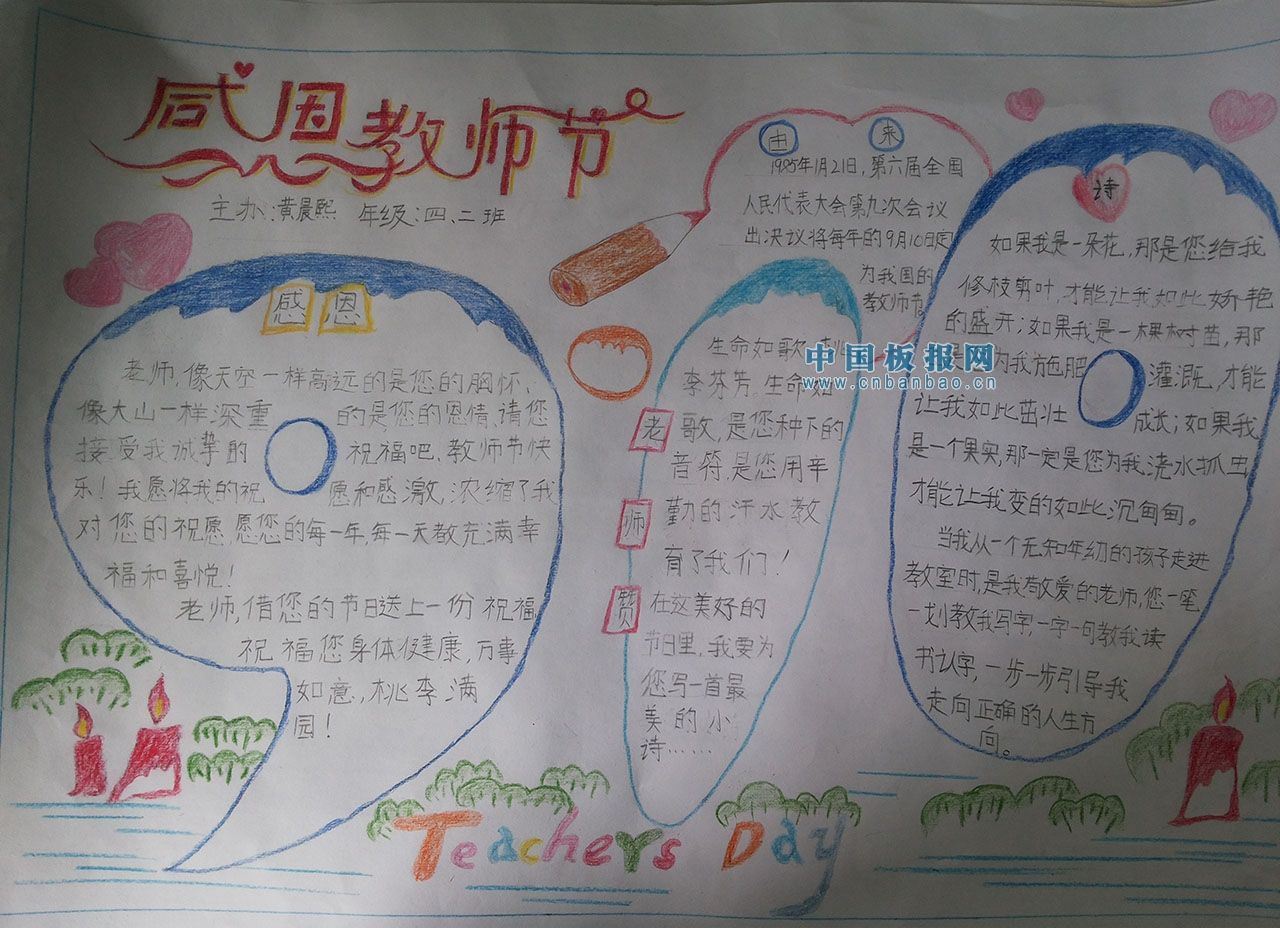 感恩教师节
主办:黄晨熙 年级:四、二班
感恩
老师,像天空一样高远的是您的胸怀、
像大山一样深重的是您的恩情、请您
接受我诚挚的祝福吧、教师节快
乐！我愿将我的祝愿和感激,浓缩了我
对您的祝愿,愿您的每一年,每一天都充满幸
福和喜悦！
老师,借您的节日送上一份祝福,
祝福您身体健康,万事
如意,桃李满
园！
由来
1985年1月21日,第六届全国
人民代表大会第九次会议
出决议将每年的9月10日定
为我国的
教师节。
老师赞
生命如歌,桃
李芬芳。生命如
歌,是您种下的
音符,是您用辛
勤的汗水教
育了我们！
在这美好的
节日里,我要为
您写一首最
美的小
诗……
诗
如果我是一朵花,那是您给我
修枝剪叶,才能让我如此娇艳
的盛开;如果我是一棵树苗,那
是为我施肥灌溉,才能
让我如此茁壮成长;如果我
是一个果实,那一定是您为我浇水抓虫
才能让我变的如此沉甸甸。
当我从一个无知年幼的孩子走进
教室时,是我敬爱的老师,您一笔
一划教我写字,一字一句教我读
书认字,一步一步引导我
走向正确的人生方
向。
中国板报网
www.cnbanbao.cn
Teachers Day